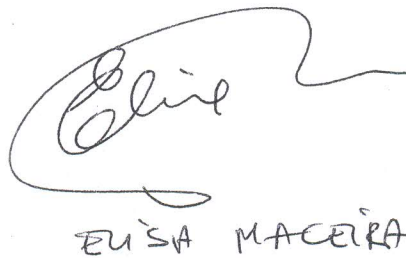 Elisa
ELISA MACEIRA